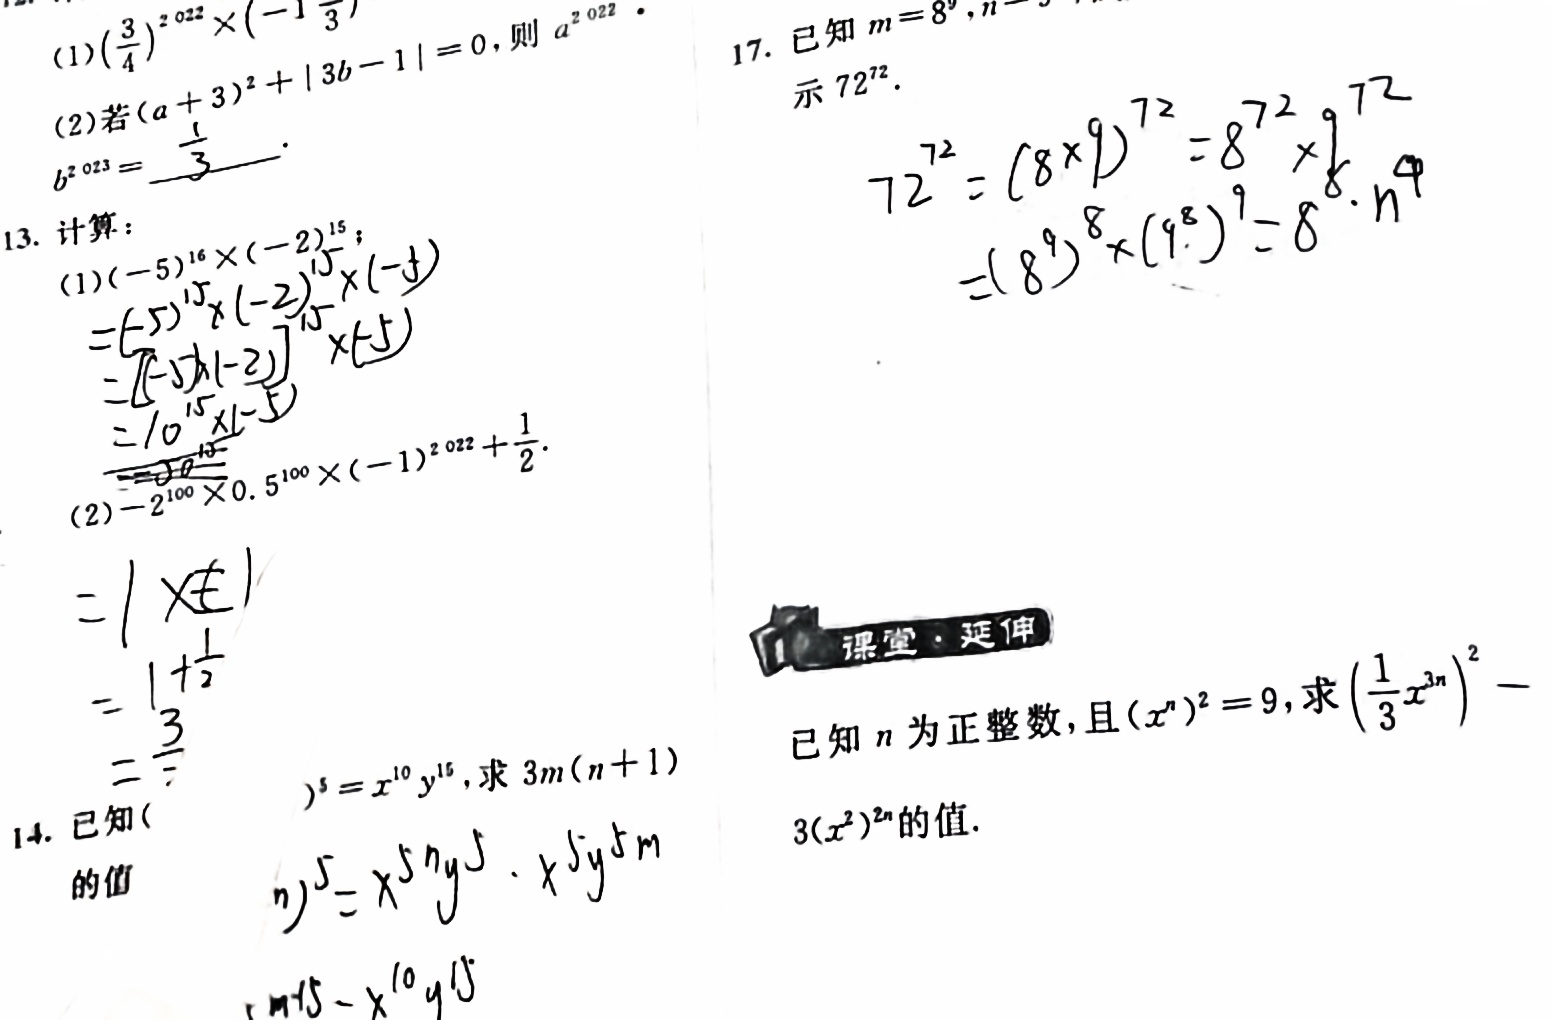 (1)(3/4)^2 022 × (-1 1/3)
(2)若(a+3)²+|3b-1|=0,则 a^2 022 ·
b^2 023 = 1/3 .
13. 计算:
(1)(-5)^16×(-2)^15;
=(-5)^15×(-2)^15×(-5)
=[(-5)×(-2)]^15×(-5)
=10^15×(-5)
(2)-2^100×0.5^100×(-1)^2 022+1/2.
=1×
=1+1/2
=3/
14. 已知( )^5=x^10 y^15,求 3m(n+1)
的值
n)^5=x^5n y^5·x^5 y^5m
m+15 - x^10 y^15
17. 已知 m=8^9,n
示 72^72.
72^72=(8×9)^72=8^72×9^72
=(8^9)^8×(9^8)^9=8^8·n^9
课堂·延伸
已知 n 为正整数,且(x^n)^2=9,求(1/3 x^3n)^2-
3(x^2)^2n的值.